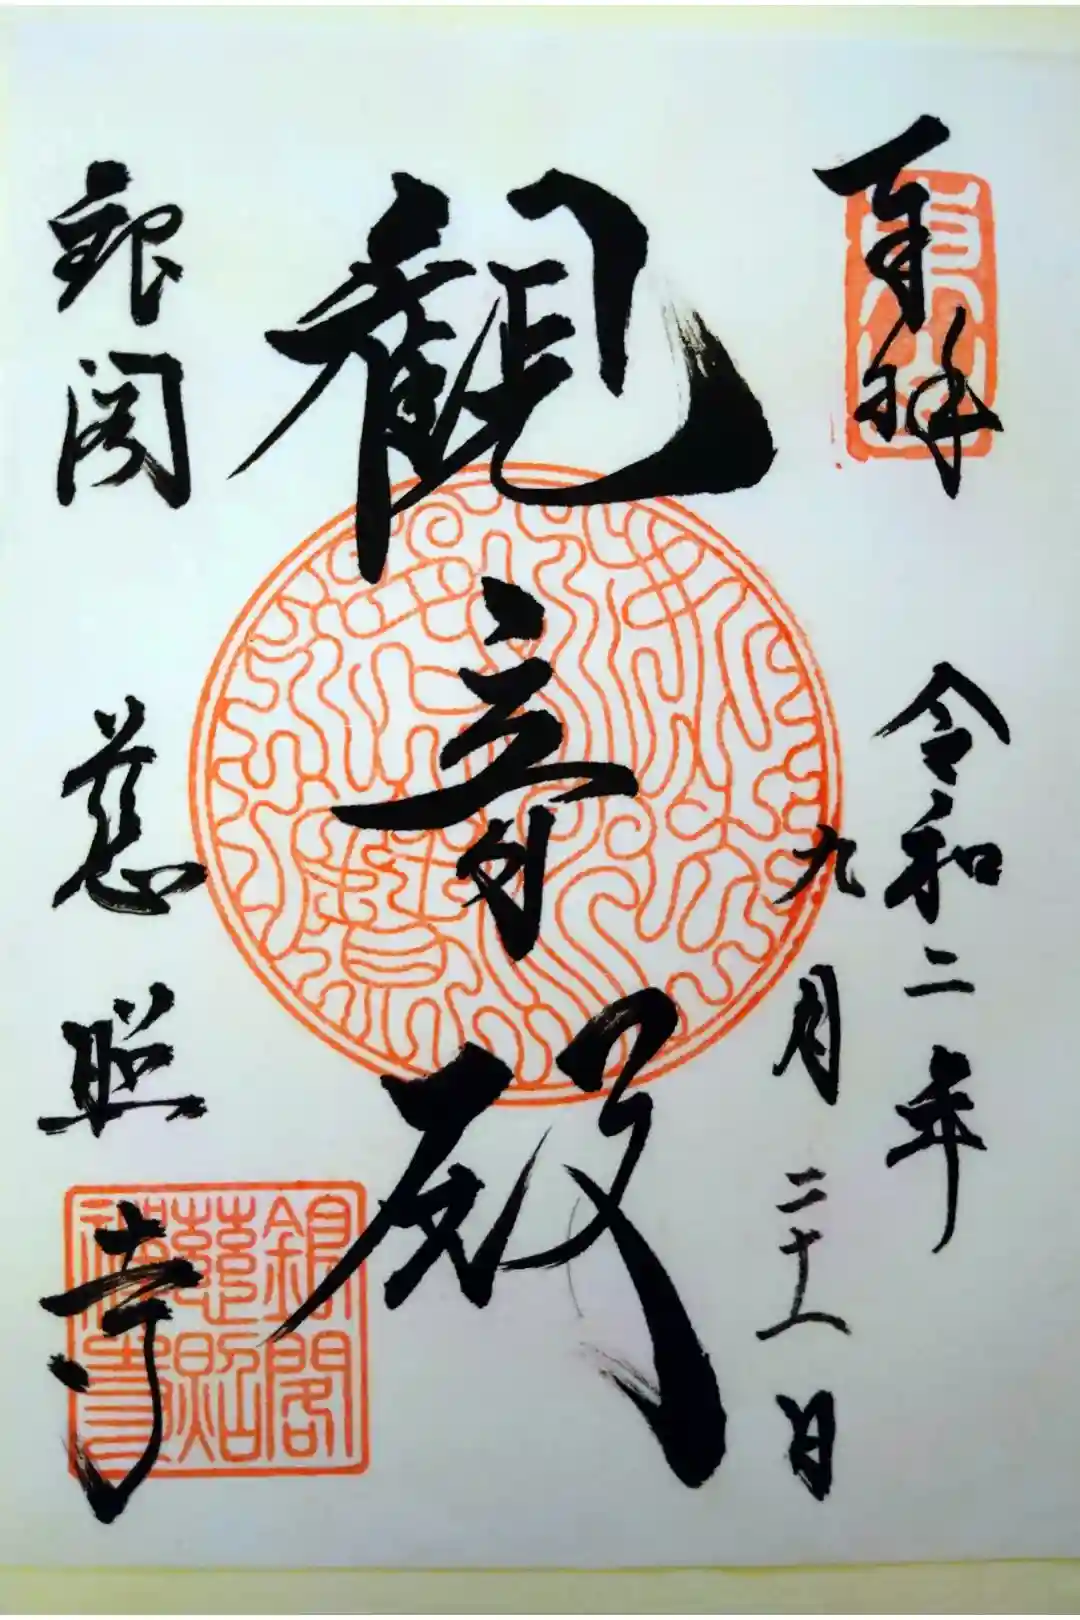 奉拝
令和二年
九月二十八日
観音殿
銀閣
慈照寺
銀閣
慈照